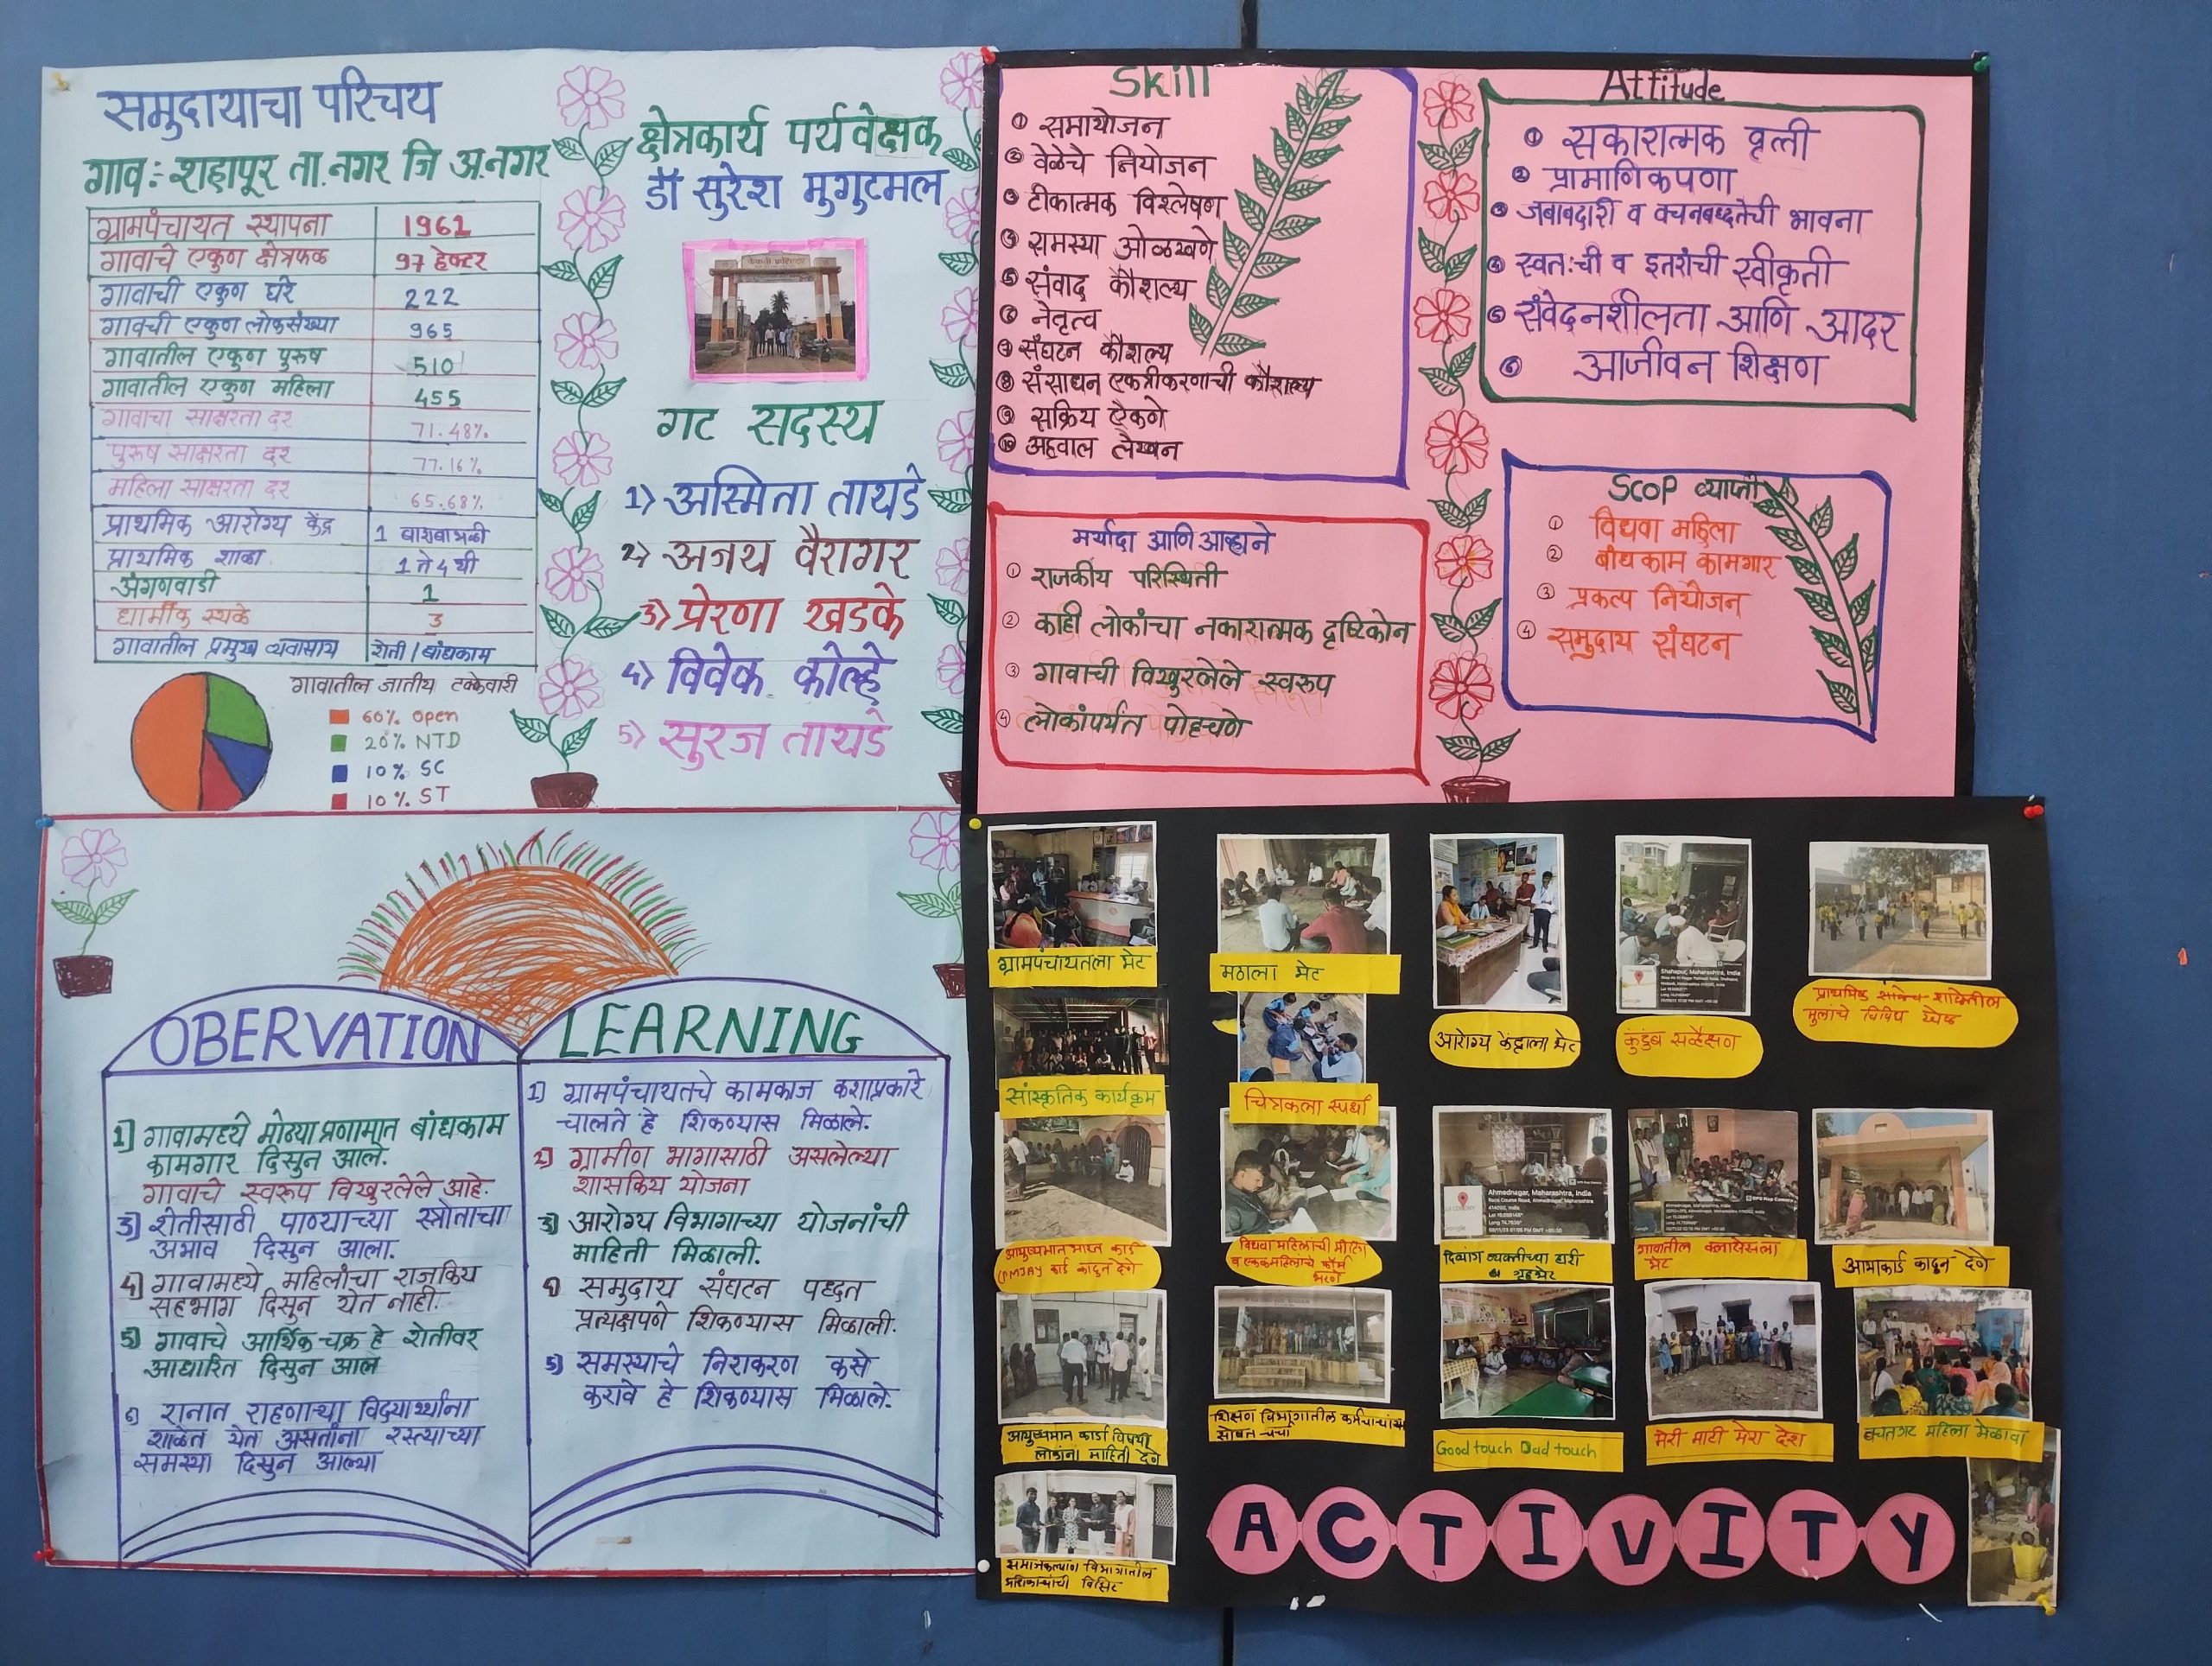 समुदायाचा परिचय
गाव:- शहापूर ता.नगर जि अ.नगर
ग्रामपंचायत स्थापना 1961
गावाचे एकुण क्षेत्रफळ 97 हेक्टर
गावाची एकुण घरे 222
गावची एकुण लोकसंख्या 965
गावातील एकुण पुरूष 510
गावातील एकुण महिला 455
गावाचा साक्षरता दर 71.48%
पुरूष साक्षरता दर 77.16%
महिला साक्षरता दर 65.68%
प्राथमिक आरोग्य केंद्र 1
प्राथमिक शाळा 1 ते 4 थी
अंगणवाडी 1
धार्मीक स्थळे 3
गावातील प्रमुख व्यवासाय शेती/बांधकाम
गावातील जातीय टक्केवारी
60% Open
20% NTD
10% SC
10% ST
क्षेत्रकार्य पर्यवेक्षक
डॉ सुरेश मुगुटमल
गट सदस्य
1) अस्मिता तायडे
2) अजय वैरागर
3) प्रेरणा खडके
4) विवेक कोल्हे
5) सुरज तायडे
Skill
① समायोजन
② वेळेचे नियोजन
③ टीकात्मक विश्लेषण
④ समस्या ओळखणे
⑤ संवाद कौशल्य
⑥ नेतृत्व
⑦ संघटन कौशल्य
⑧ संसाधन एकत्रीकरणाची कौशल्य
⑨ सक्रिय ऐकणे
⑩ अहवाल लेखन
Attitude
① सकारात्मक वृत्ती
② प्रामाणिकपणा
③ जबाबदारी व वचनबध्दतेची भावना
④ स्वतःची व इतरांची स्वीकृती
⑤ संवेदनशीलता आणि आदर
⑥ आजीवन शिक्षण
मर्यादा आणि आव्हाने
① राजकीय परिस्थिती
② काही लोकांचा नकारात्मक दृष्टिकोन
③ गावाची विखुरलेले स्वरूप
④ लोकांपर्यंत पोहचणे
Scop व्याप्ती
① विधवा महिला
② बांधकाम कामगार
③ प्रकल्प नियोजन
④ समुदाय संघटन
OBERVATION
1] गावामध्ये मोठ्या प्रणामात बांधकाम
कामगार दिसुन आले.
गावाचे स्वरूप विखुरलेले आहे.
3] शेतीसाठी पाण्याच्या स्त्रोताचा
अभाव दिसुन आला.
4] गावामध्ये महिलांचा राजकिय
सहभाग दिसुन येत नाही.
5] गावाचे आर्थिक चक्र हे शेतीवर
आधारित दिसुन आल
6) रानात राहणाऱ्या विद्यार्थ्यांना
शाळेत येत असतांना रस्त्याच्या
समस्या दिसुन आल्या
LEARNING
1) ग्रामपंचायतचे कामकाज कशाप्रकारे
चालते हे शिकण्यास मिळाले.
2) ग्रामीण भागासाठी असलेल्या
शासकिय योजना
3) आरोग्य विभागाच्या योजनांची
माहिती मिळाली.
समुदाय संघटन पध्दत
प्रत्यक्षपणे शिकण्यास मिळाली.
5) समस्याचे निराकरण कसे
करावे हे शिकण्यास मिळाले.
ग्रामपंचायतला भेट
मठाला भेट
आरोग्य केंद्राला भेट
Shahapur, Maharashtra, India
Google
कुंटुंब सर्व्हेक्षण
प्राथमिक शाळेतील
मुलाचे विविध खेळ
सांस्कृतिक कार्यक्रम
चित्रकला स्पर्धा
आयुष्यमान भारत कार्ड
(PMJAY कार्ड काढुन देणे
विधवा महिलांची मीटिंग
व एकलमहिलाचे फॉर्म
भरणे
Ahmednagar, Maharashtra, India
Google
दिव्यांग व्यक्तीच्या घरी
गृहभेट
गावातील क्लासेसला
भेट
आभाकार्ड काढुन देणे
आयुष्यमान कार्ड विषयी
लोकांना माहिती देणे
शिक्षण विभागातील कर्मचाऱ्यांच्या
सोबत चर्चा
Good touch Bad touch
मेरी माटी मेरा देश
बचतगट महिला मेळावा
समाजकल्याण विभागातील
अधिकाऱ्यांची व्हिजिट
ACTIVITY